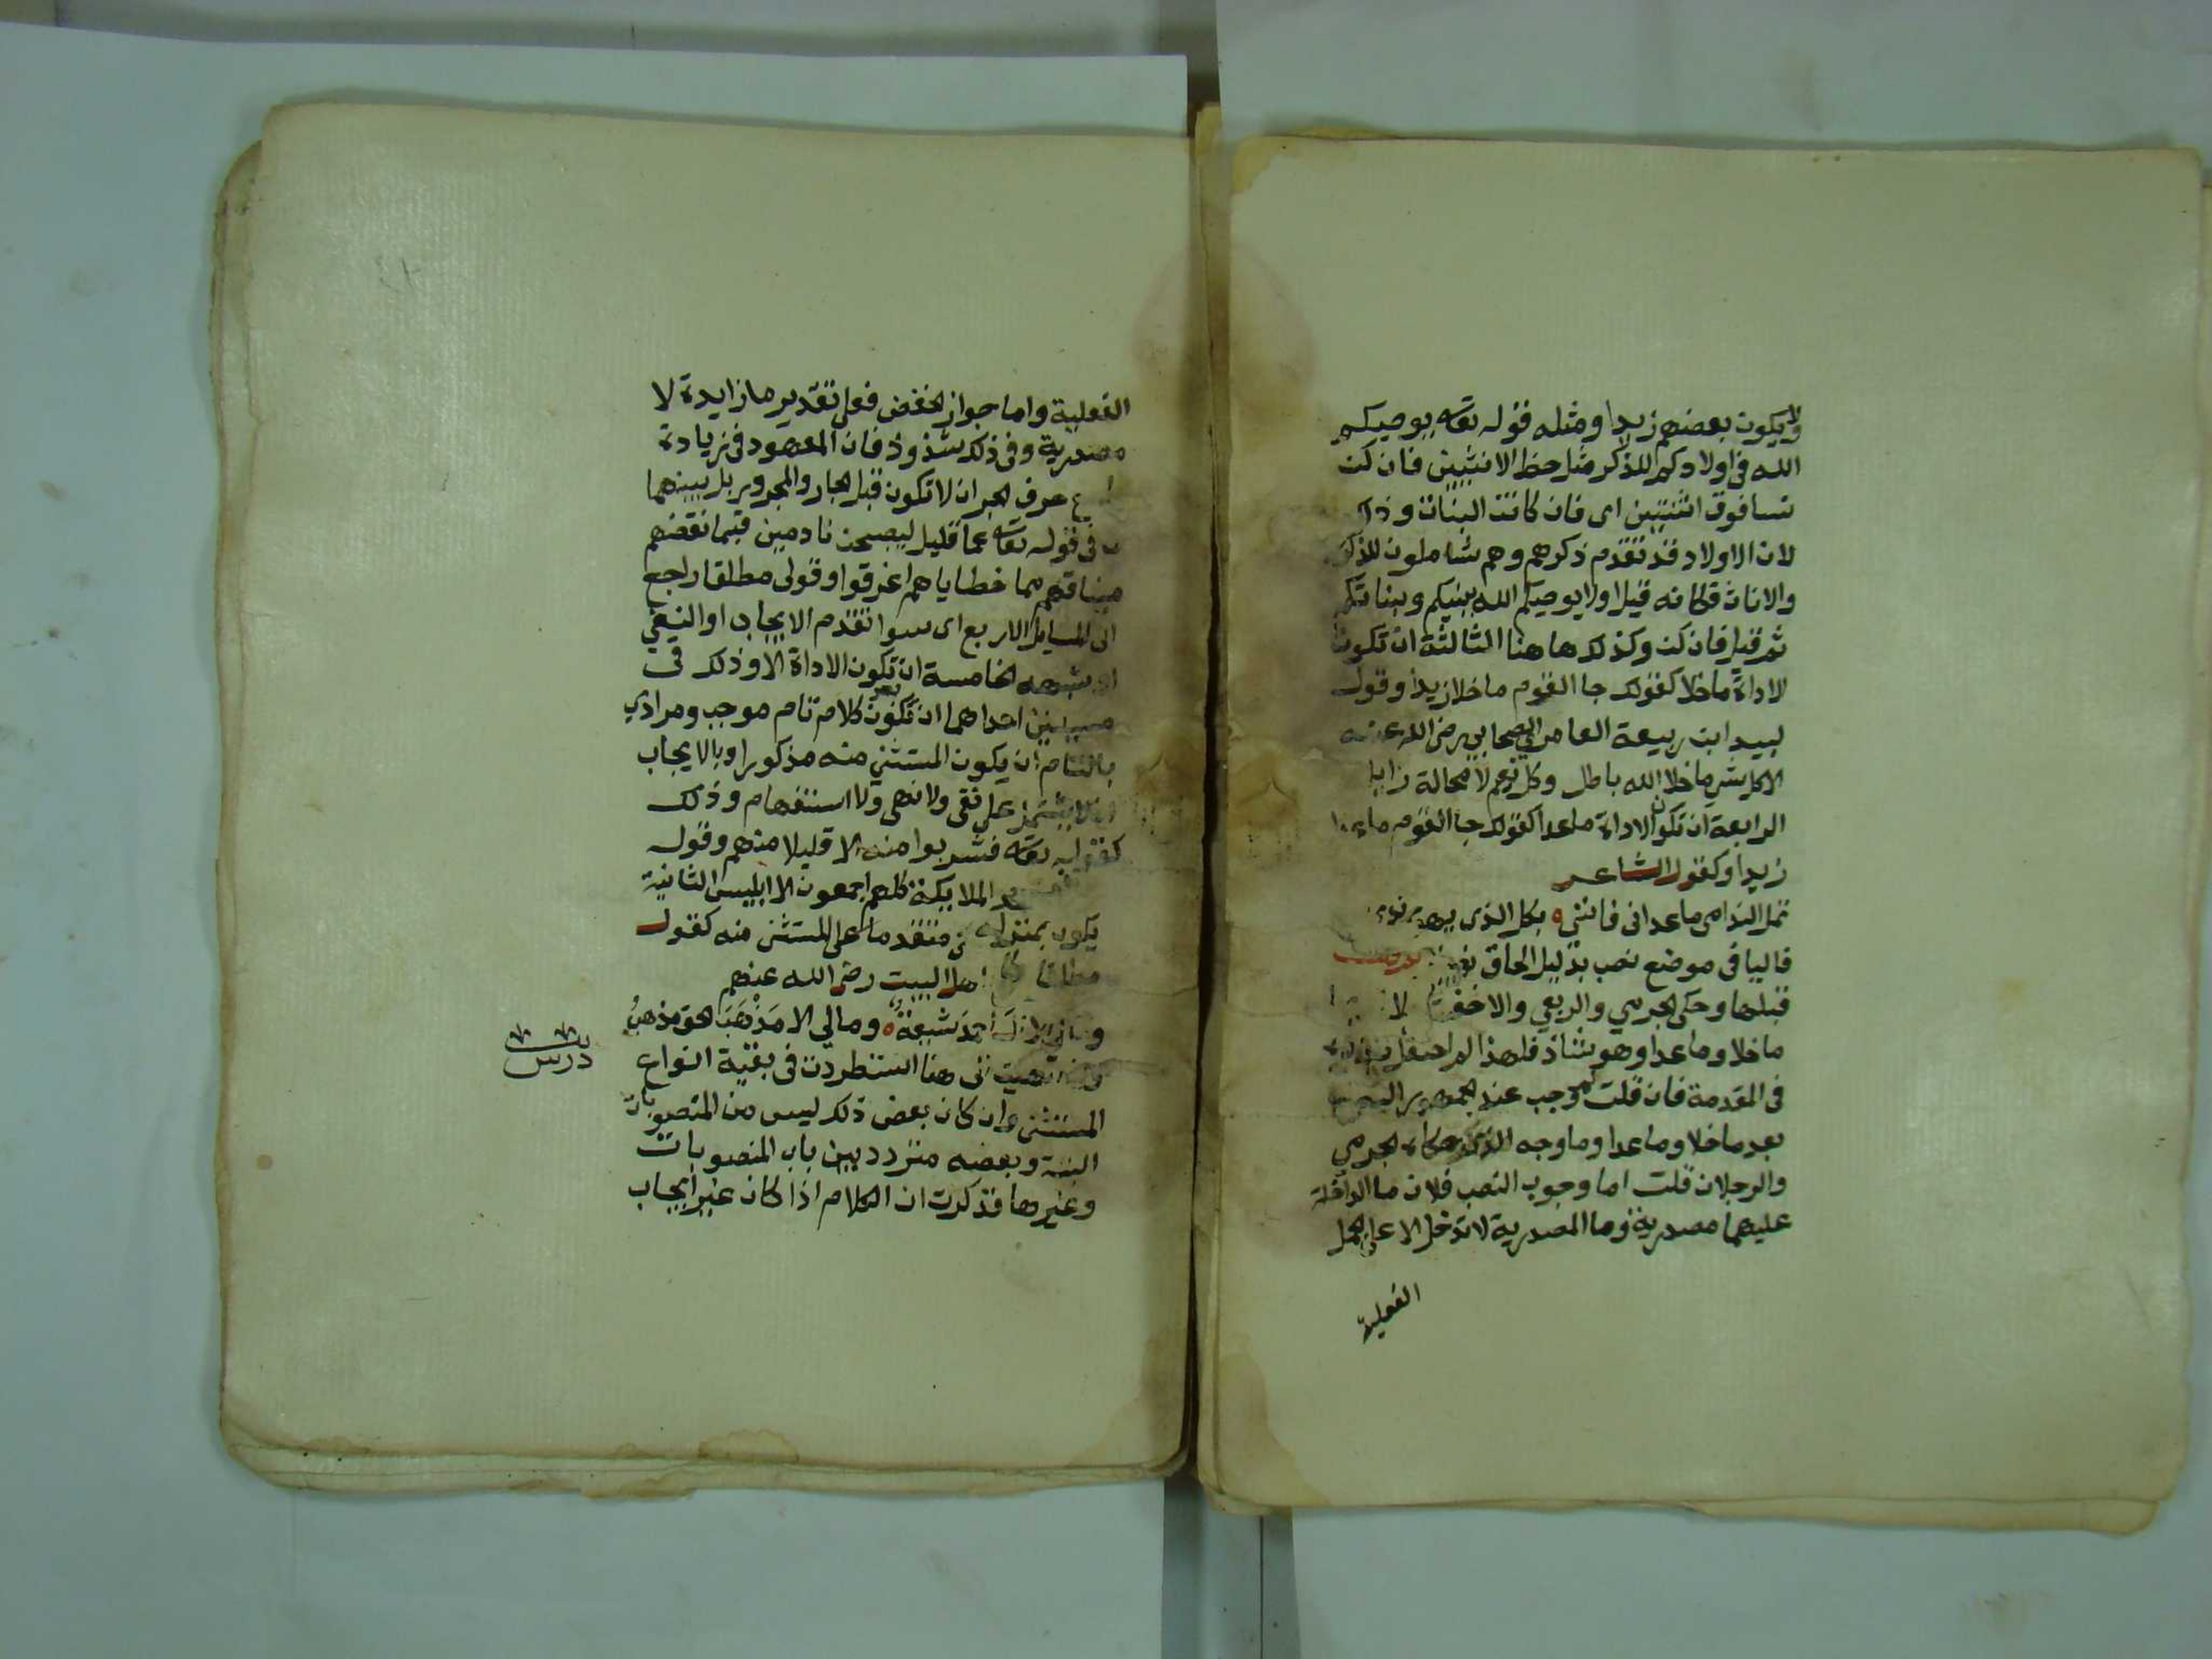 ولا يكون بعضهم زيدا ومثله قوله تعه يوصيكم
الله في اولادكم للذكر مثل حظ الانثيين فان كن
نسا فوق اثنتين اى فان كانت البنات وذلك
لان الاولاد قد تقدم ذكرهم وهم شاملون للذكور
والاناث فكانه قيل اولا يوصيكم الله ببنيكم وبناتكم
ثم قيل فان كن وكذلك هاهنا الثالثة ان تكون
الاداة ماخلا كقولك جا القوم ماخلا زيدا وقول
لبيد ابن ربيعة العامري الصحابي رضي الله عنه
الا كل شي ماخلا الله باطل وكل نعيم لا محالة زايل
الرابعة ان تكون الاداة ماعدا كقولك جا القوم ماعدا
زيدا وكقول الشاعر
تمل الندامى ماعداني فانني ه بكل الذي يهوى
فاليا في موضع نصب بدليل الحاق
قبلها وحكى الجرمي والربعي والاخفش
ماخلا وماعدا وهو شاذ فلهذا لم احفل
في المقدمة فان قلت لم وجب عند الجمهور النصب
بعد ماخلا وماعدا وما وجه الذي حكاه الجرمي
والرجلان قلت اما وجوب النصب فلان ما الداخلة
عليهما مصدرية وما المصدرية لا تدخل الا على الجمل
الفعلية
الفعلية واما جواز الخفض فعلى تقدير ما زايدة لا
مصدرية وفي ذلك شذوذ فان المعهود في زيادة
مع حرف الجر ان لا تكون قبل الجار والمجرور بل بينهما
في قوله تعه عما قليل ليصبحن نادمين فبما نقضهم
ميثاقهم مما خطاياهم اغرقوا وقولى مطلقا راجع
الى المسايل الاربع اى سوا تقدم الايجاب او النفي
او شبهه الخامسة ان تكون الاداة الا وذلك في
مسيلتين احداهما ان تكون بعد كلام تام موجب ومرادي
بالتام ان يكون المستثني منه مذكورا وبالايجاب
ان لا يشتمل على نفى ولا نهى ولا استفهام وذلك
كقوله تعه فشربوا منه الا قليلا منهم وقوله
الملايكة كلهم اجمعون الا ابليس الثانية
يكون متقدما على المستثنى منه كقول
اهل البيت رضى الله عنهم
ومالي الا آل احمد شيعة ه ومالي الا مذهب الحق مذهب
الى هنا استطردت في بقية انواع
المستثنى وان كان بعض ذلك ليس من المنصوبات
البتة وبعضه متردد بين باب المنصوبات
وغيرها فذكرت ان الكلام اذا كان غير ايجاب
درس